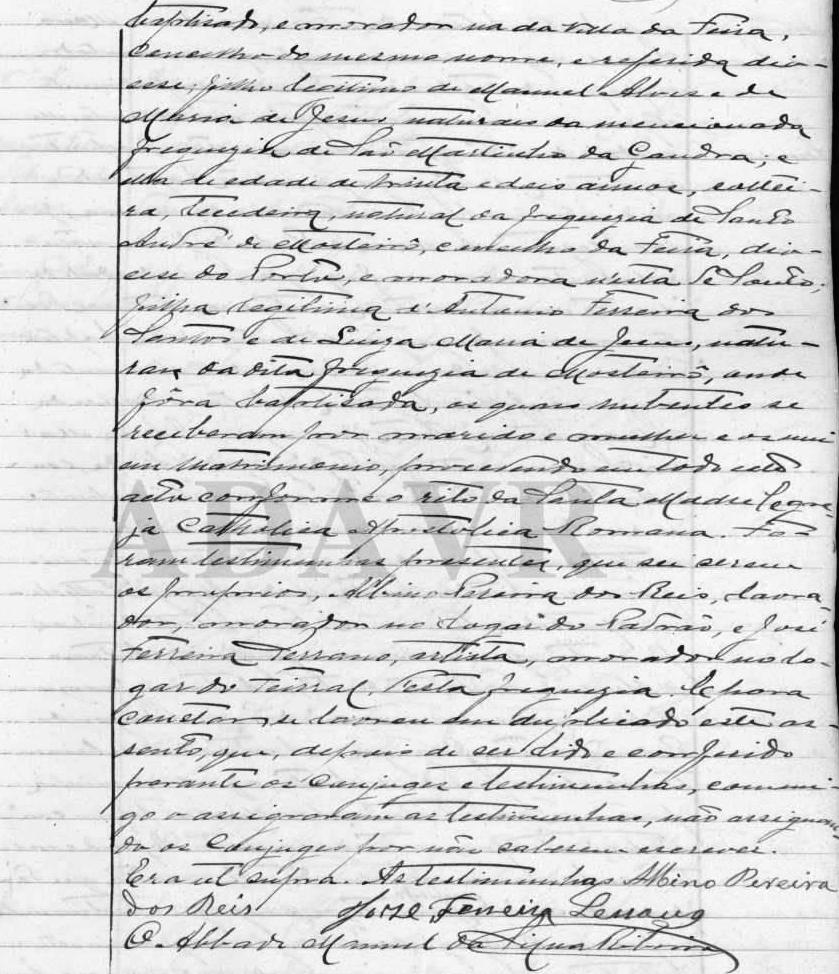 baptisado, e morador na da villa da Feira,
Concelho do mesmo nome, e referida dio-
cese, filho legitimo de Manuel Alves e de
Maria de Jesus naturaes da mencionada
freguezia de São Martinho da Gandra; e
ella de edade de trinta e dois annos, soltei-
ra, tecedeira, natural da freguezia de Santo
André de Mosteirô, concelho da Feira, dio-
cese do Porto, e moradora n'esta
filha legitima d'Antonio Ferreira dos
Santos e de Luiza Maria de Jesus, natu-
raes da dita freguezia de Mosteirô, onde
fôra baptisada, os quaes nubentes se
receberam por marido e mulher e os uni
em Matrimonio, procedendo em todo este
acto conforme o rito da Santa Madre Egre
ja Catholica Apostolica Romana. Fo-
ram testimunhas presentes, que sei serem
os proprios, Albino Pereira dos Reis, lavra
dor, morador no logar do Padrão, e José
Ferreira Terrano, artista, morador no lo-
gar do d'esta freguezia. E para
constar se lavrou em duplicado este as-
sento, que, depois de ser lido e conferido
perante os Conjuges e testimunhas, commi
go o assignaram as testimunhas, não assignan-
do os Conjuges por não saberem escrever.
Era ut supra. As testimunhas Albino Pereira
dos Reis José Ferreira
O Abbade Manuel da Ribeiro
ADAVR